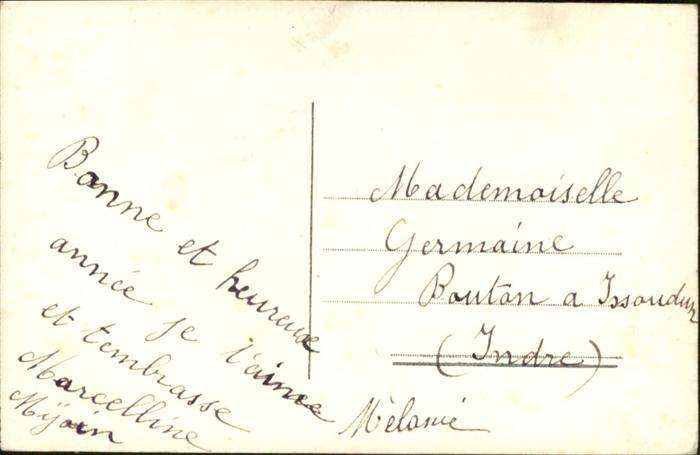 Bonne et heureuse
année je t'aime
et tembrasse
Marcelline
Mélanie
Mademoiselle
Germaine
Bouton a Issoudun
(Indre)